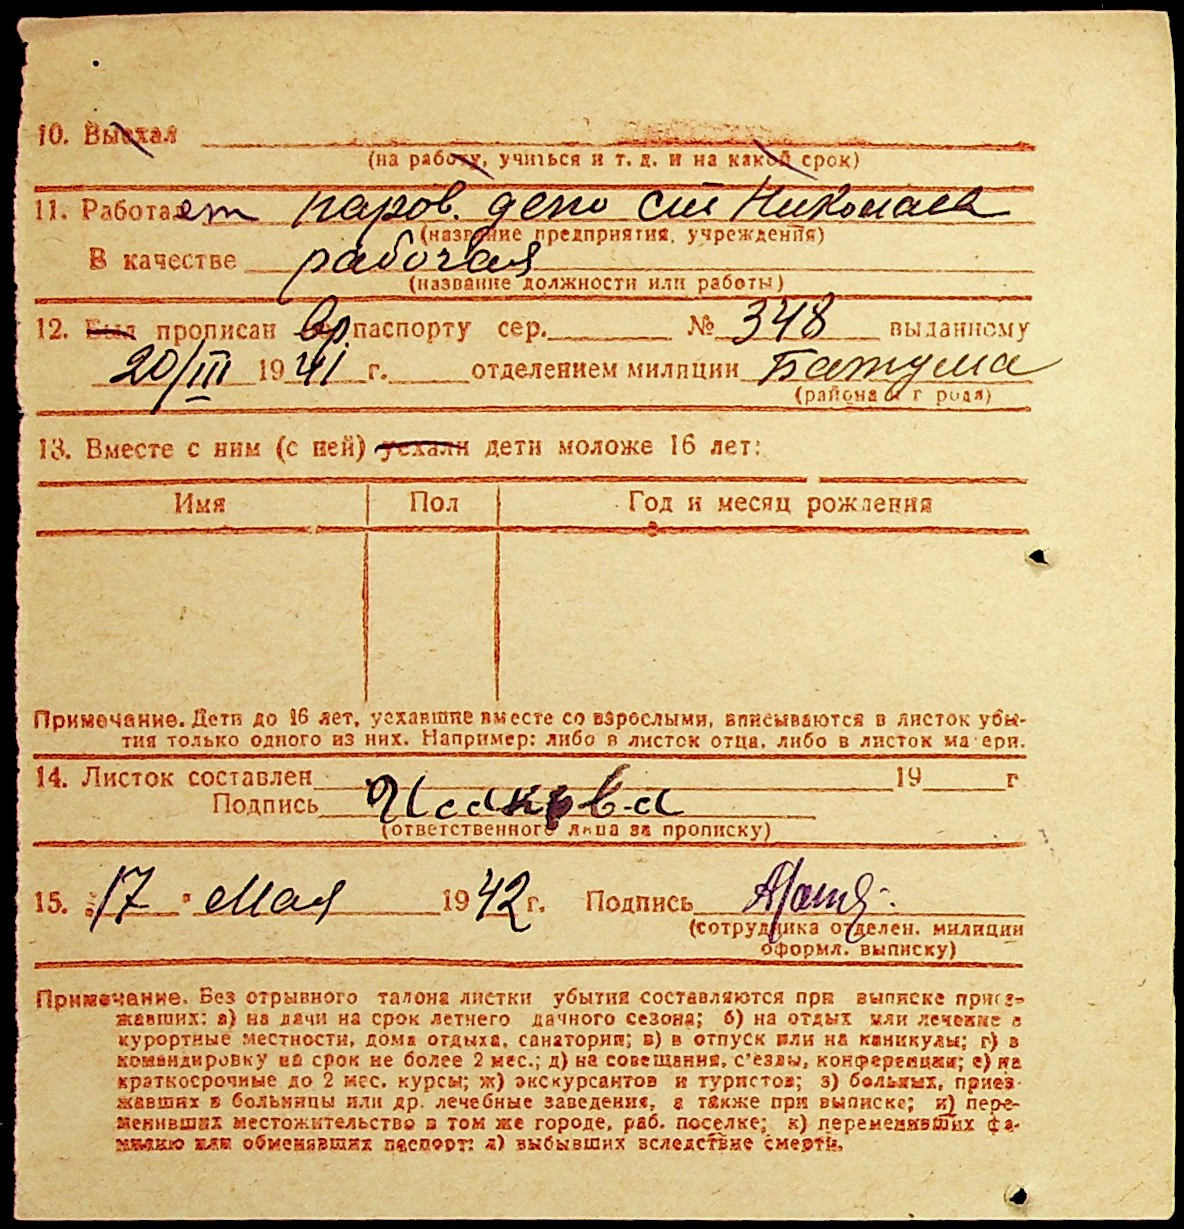 10. Выехал
(на работу, учиться и т. д. и на какой срок)
11. Работает паров. депо ст Николаев
(название предприятия, учреждения)
В качестве рабочая
(название должности или работы)
12. Был прописан вр паспорту сер. № 348 выданному
20/III 1941 г. отделением милиции Батума
(района и г рода)
13. Вместе с ним (с ней) уехали дети моложе 16 лет:
Имя Пол Год и месяц рождения
Примечание. Дети до 16 лет, уехавшие вместе со взрослыми, вписываются в листок убы-
тия только одного из них. Например: либо в листок отца, либо в листок ма ери.
14. Листок составлен 19 г
Подпись Исакова
(ответственного лица за прописку)
15. "17" Мая 1942 г. Подпись
(сотрудника отделен. милиции
оформл. выписку)
Примечание. Без отрывного талона листки убытия составляются при выписке приез-
жавших: а) на дачи на срок летнего дачного сезона; б) на отдых или лечение в
курортные местности, дома отдыха, санатории; в) в отпуск или на каникулы; г) в
командировку на срок не более 2 мес.; д) на совещания, с'езды, конференции; е) на
краткосрочные до 2 мес. курсы; ж) экскурсантов и туристов; з) больных, приез-
жавших в больницы или др. лечебные заведения, а также при выписке; и) пере-
менивших местожительство в том же городе, раб. поселке; к) переменивших фа-
милию или обменявших паспорт: л) выбывших вследствие смерти.